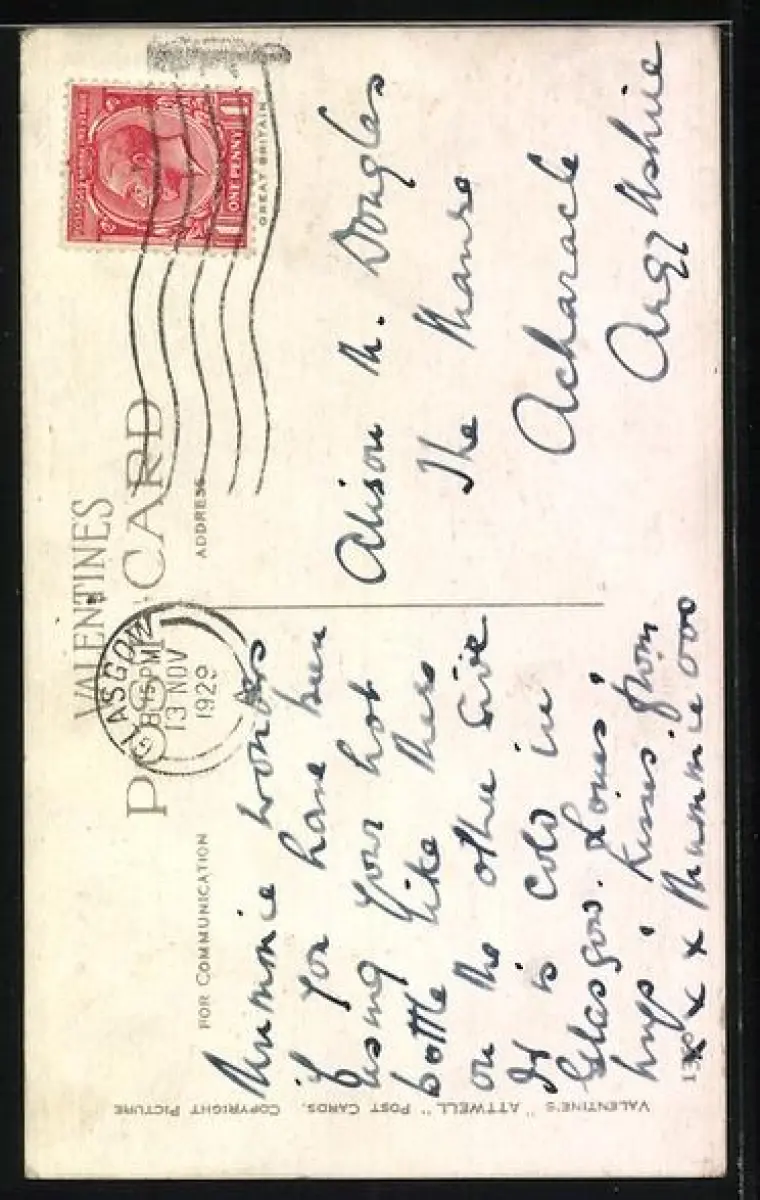 VALENTINE'S
POST CARD
FOR COMMUNICATION
ADDRESS
GREAT BRITAIN
ONE PENNY
GLASGOW
8 15 PM
13 NOV
1929
Mummie wonders
if you have been
using your hot
bottle like there
on the other side
It is cold in
Glasgow. Loves,
hugs, kisses from
x x x Mummie ooo
Alison M. Douglas
The Manse
Acharacle
Argyllshire
VALENTINE'S "ATTWELL" POST CARDS. COPYRIGHT PICTURE